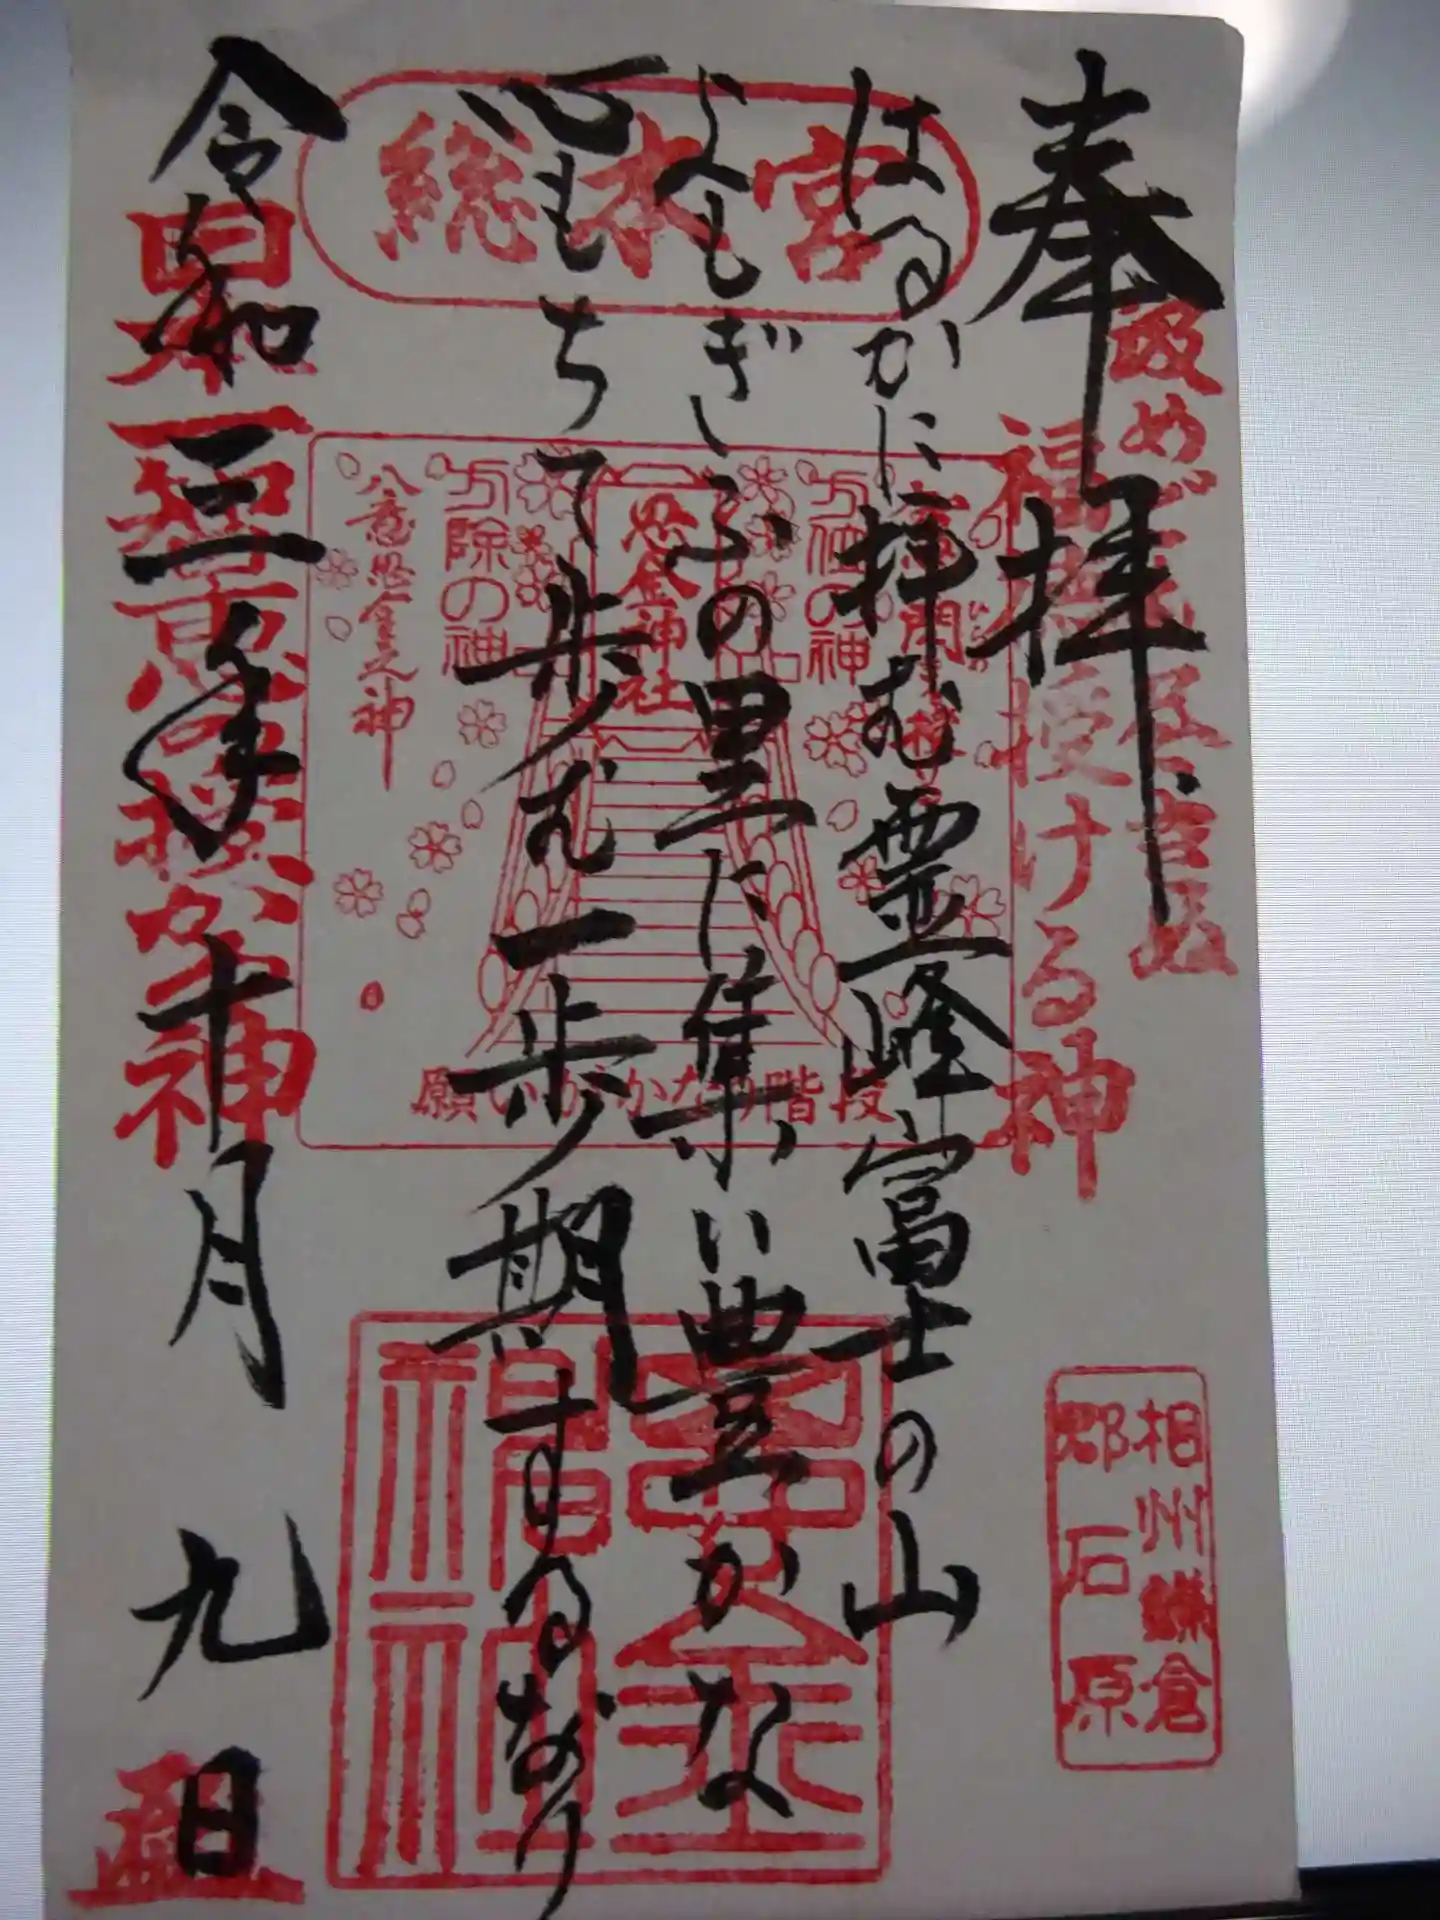 奉拝
はるかに拝む霊峰富士の山
よもぎふの里に集い豊かな
心もちて歩む一歩期するなり
令和三年十月九日
総本宮
福授ける神
八意思金之神
方除の神
思金神社
願いがかなう階段
相州鎌倉
郡石原
思金
神社